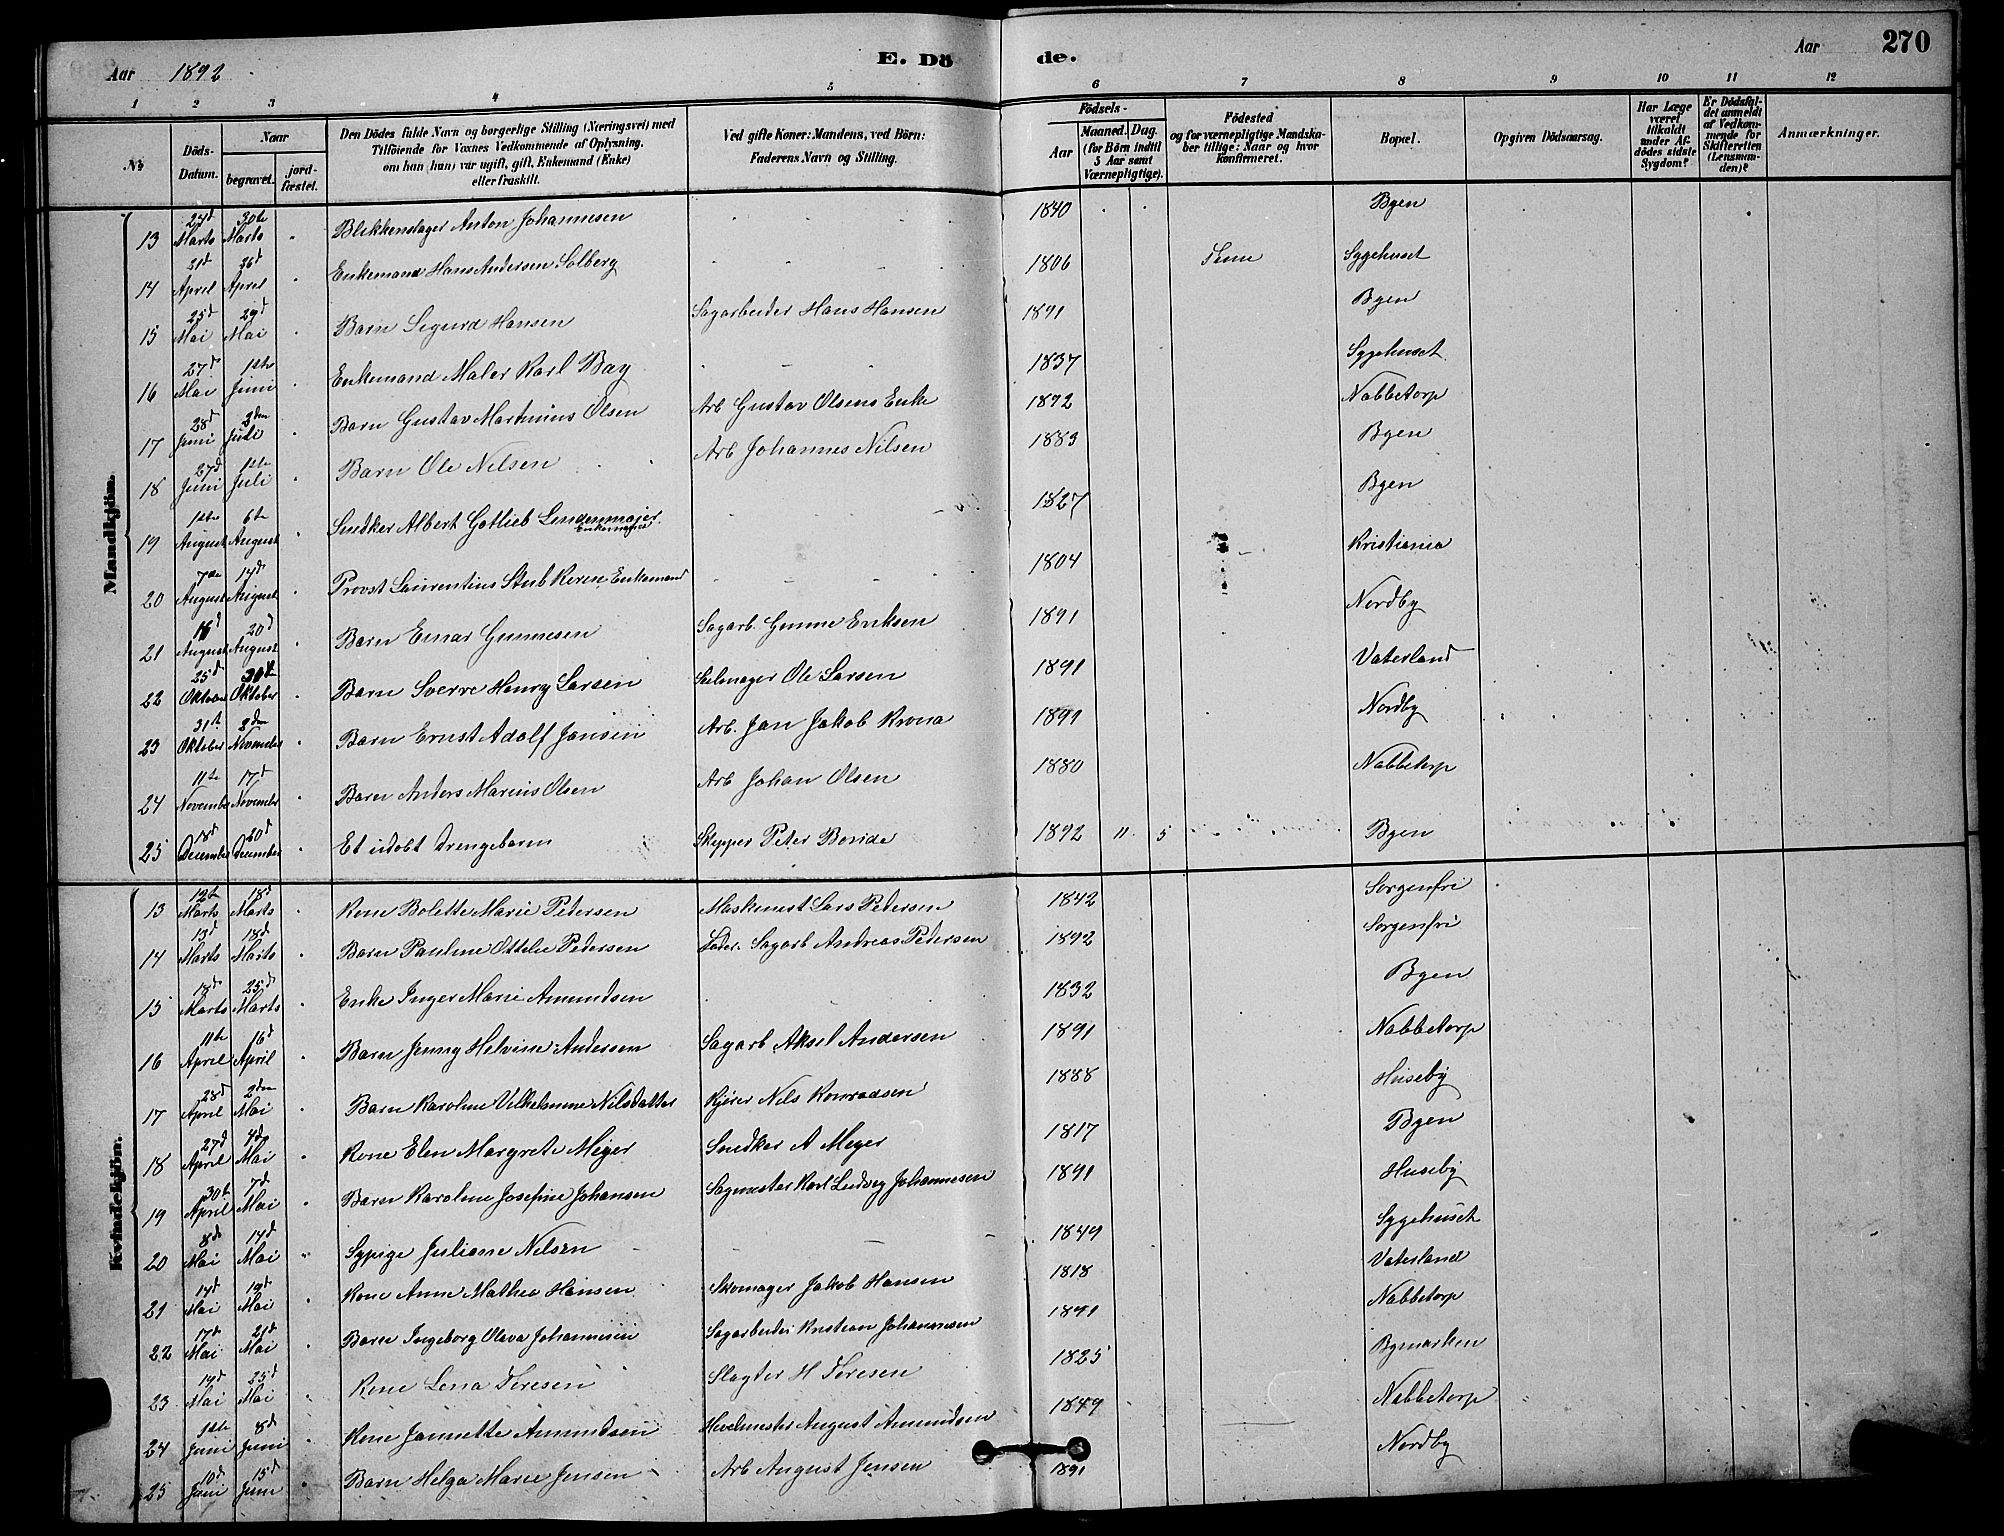 Aar 1892
E. Dö de.
Aar 270
1 2 3 4 5 6 7 8 9 10 11 12
No
Döds-Datum.
Naar
begravet.
jord-fæstet.
Den Dödes fulde Navn og borgerlige Stilling (Næringsvei) med
Tilföiende for Voxnes Vedkommende af Oplysning,
om han (hun) var ugift, gift, Enkemand (Enke)
eller fraskilt.
Ved gifte Koner: Mandens, ved Börn:
Faderens Navn og Stilling.
Födsels-
Aar
Maaned. Dag.
(for Börn indtil
5 Aar samt
Værnepligtige).
Födested
og for værnepligtige Mandska-
ber tillige: Naar og hvor
konfirmeret.
Bopæl.
Opgiven Dödsaarsag.
Har Læge
været
tilkaldt
under Af-
dödes sidste
Sygdom?
Er Dödsfal-
det anmeldt
af Vedkom-
mende for
Skifteretten
(Lensman-
den)?
Anmærkninger.
Mandkjön.
13 Marts 30te Marts Blikkenslager Anton Johannesen 1840 Byen
14 21d April 26d April Enkemand Hans Andersen Solberg 1806 Sygehuset
15 25d Mai 29d Mai Barn Sigurd Hansen Sagarbeider Hans Hansen 1891 Byen
16 27d Mai 1ste Juni Enkemand Maler Karl Bay 1837 Sygehuset
17 28d Juni 2den Juli Barn Gustav Martinius Olsen Arb Gustav Olsens Enke 1892 Nabbetorp
18 27d Juni 1ste Juli Barn Ole Nilsen Arb Johannes Nilsen 1883 Byen
19 1ste August 6te August Snedker Albert Gotlieb Lindenmajer Enkemand 1827 Byen
20 7de August 14d August Provst Laurentius Stub Koren Enkemand 1804 Kristiania
21 August 20d August Barn Einar Gunnesen Sagarb. Gunne Eriksen 1891 Nordby
22 25d Oktober Oktober Barn Sverre Henry Larsen Seilmager Ole Larsen 1891 Vaterland
23 31te Oktober November Barn Ernst Adolf Jansen Arb. Jan Jakob Krona 1891 Nordby
24 11te November 17d November Barn Anders Marius Olsen Arb Johan Olsen 1880 Nabbetorp
25 18d December 20d December Et udöbt Drengebarn Skipper Peter 1892 11 5 Byen
Kvindekjön.
13 12te Marts 18d Marts Kone Bolette Marie Petersen Maskinist Lars Petersen 1842 Sorgenfri
14 13d Marts 18d Marts Barn Pauline Ottilie Pedersen Fader. Sagarb Andreas Pedersen 1892 Sorgenfri
15 18d Marts 25d Marts Enke Inger Marie Amundsen 1832 Byen
16 11te April 16d April Barn Jenny Helvine Andersen Sagarb Aksel Andersen 1891 Nabbetorp
17 28d April 2den Mai Barn Karoline Vilhelmine Nilsdatter Kjörer Nils Konradsen 1888 Huseby
18 27d April 4d Mai Kone Elen Margrete Meyer Snedker A Meyer 1817 Byen
19 30te April 7d Mai Barn Karoline Josefine Johansen Sagmester Karl Ludvig Johannesen 1891 Huseby
20 8d Mai 14d Mai Sypige Juliane Nilsen 1849 Sygehuset
21 14d Mai 19d Mai Kone Anne Mathea Hansen Skomager Jakob Hansen 1818 Vaterland
22 17d Mai 21d Mai Barn Ingeborg Olava Johannesen Sagarbeider Kristian Johannesen 1891 Nabbetorp
23 19d Mai 25d Mai Kone Lena Toresen Slagter H Toresen 1825 Bymarken
24 1ste Juni 8d Juni Kone Jannette Amundsen Hövelmester August Amundsen 1849 Nabbetorp
25 10d Juni 15d Juni Barn Helga Marie Jensen Arb August Jensen 1891 Nordby